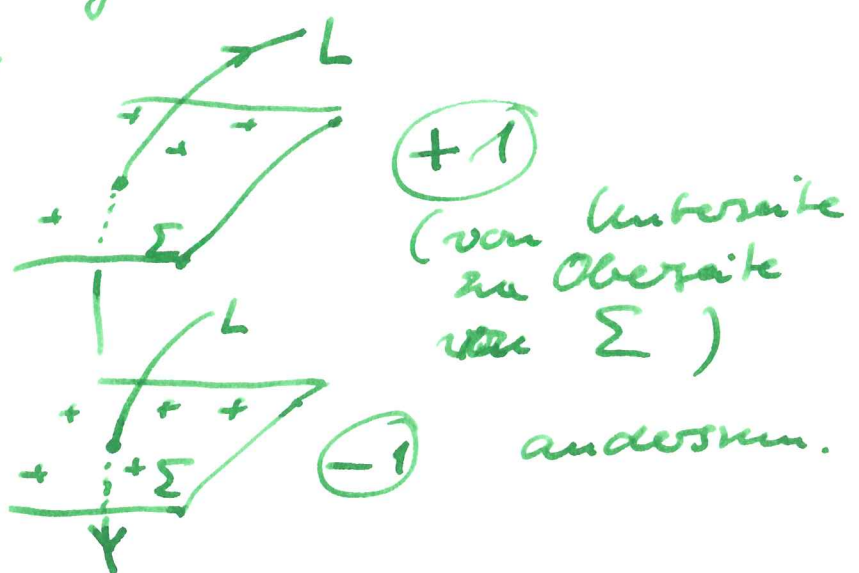 L
+ + +
+ 1
+
Σ
(von Unterseite
zu Oberseite
von Σ )
L
+ + +
+ + Σ
- 1
andersrum.